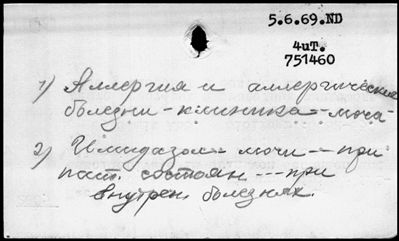 5.6.69.ND
4иТ.
751460
1) Аллергия и аллергические
болезни - клиника - моча -
2) Имидазол - мочи - - при
пат. состоян - - - при
внутрен. болезнях.